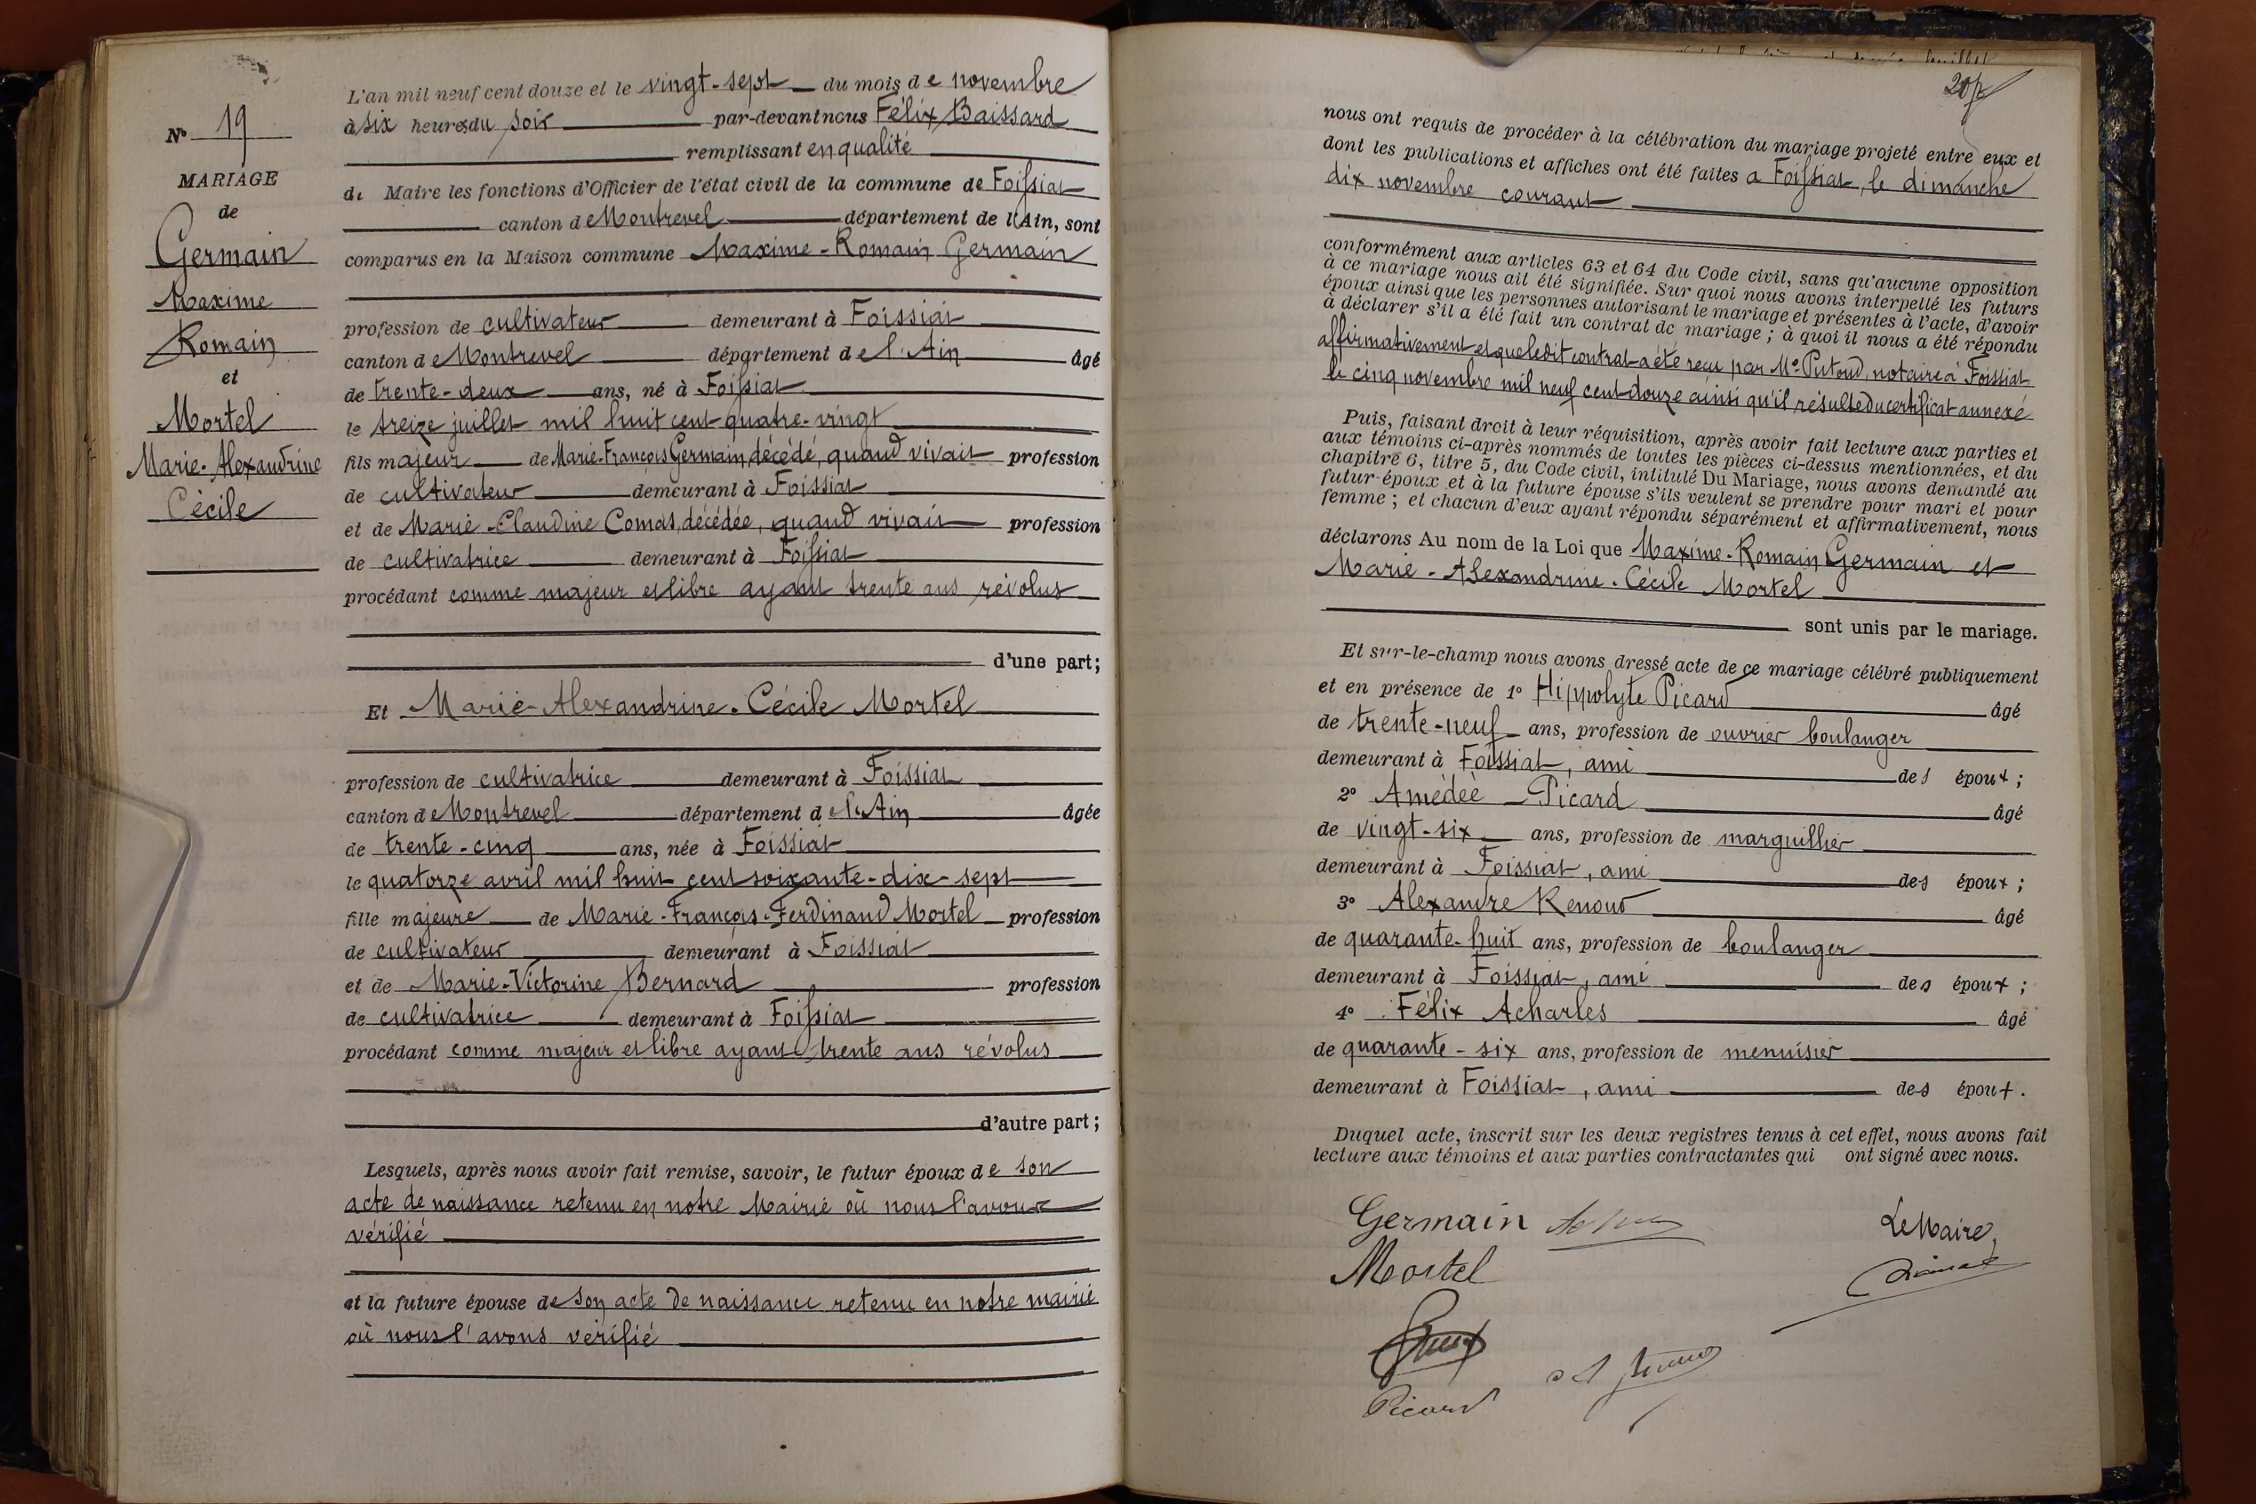 N° 19
MARIAGE
de
Germain
Maxime
Romain
et
Mortel
Marie-Alexandrine
Cécile
L'an mil neuf cent douze et le vingt-sept du mois de novembre
à six heures du soir par-devant nous Félix Baissard
remplissant en qualité
de Maire les fonctions d'Officier de l'état civil de la commune de Foissiat
canton de Montrevel département de l'Ain, sont
comparus en la Maison commune Maxime-Romain Germain
profession de cultivateur demeurant à Foissiat
canton de Montrevel département de l'Ain âgé
de trente-deux ans, né à Foissiat
le treize juillet mil huit cent quatre-vingt
fils majeur de Marie-François Germain, décédé, quand vivait profession
de cultivateur demeurant à Foissiat
et de Marie-Claudine Comas, décédée, quand vivait profession
de cultivatrice demeurant à Foissiat
procédant comme majeur et libre ayant trente ans révolus
d'une part;
Et Marie-Alexandrine-Cécile Mortel
profession de cultivatrice demeurant à Foissiat
canton de Montrevel département de l'Ain âgée
de trente-cinq ans, née à Foissiat
le quatorze avril mil huit cent soixante-dix-sept
fille majeure de Marie-François-Ferdinand Mortel profession
de cultivateur demeurant à Foissiat
et de Marie-Victorine Bernard profession
de cultivatrice demeurant à Foissiat
procédant comme majeur et libre ayant trente ans révolus
d'autre part;
Lesquels, après nous avoir fait remise, savoir, le futur époux de son
acte de naissance retenu en notre Mairie où nous l'avons
vérifié
et la future épouse de son acte de naissance retenu en notre mairie
où nous l'avons vérifié
nous ont requis de procéder à la célébration du mariage projeté entre eux et
dont les publications et affiches ont été faites à Foissiat, le dimanche
dix novembre courant
conformément aux articles 63 et 64 du Code civil, sans qu'aucune opposition
à ce mariage nous ait été signifiée. Sur quoi nous avons interpellé les futurs
époux ainsi que les personnes autorisant le mariage et présentes à l'acte, d'avoir
à déclarer s'il a été fait un contrat de mariage; à quoi il nous a été répondu
affirmativement et que ledit contrat a été reçu par Me Putoud, notaire à Foissiat
le cinq novembre mil neuf cent douze ainsi qu'il résulte du certificat annexé
Puis, faisant droit à leur réquisition, après avoir fait lecture aux parties et
aux témoins ci-après nommés de toutes les pièces ci-dessus mentionnées, et du
chapitre 6, titre 5, du Code civil, intitulé Du Mariage, nous avons demandé au
futur époux et à la future épouse s'ils veulent se prendre pour mari et pour
femme; et chacun d'eux ayant répondu séparément et affirmativement, nous
déclarons Au nom de la Loi que Maxime-Romain Germain et
Marie-Alexandrine-Cécile Mortel
sont unis par le mariage.
Et sur-le-champ nous avons dressé acte de ce mariage célébré publiquement
et en présence de 1° Hippolyte Picard âgé
de trente-neuf ans, profession de ouvrier boulanger
demeurant à Foissiat, ami des époux;
2° Amédée Picard âgé
de vingt-six ans, profession de marguillier
demeurant à Foissiat, ami des époux;
3° Alexandre Renoud âgé
de quarante-huit ans, profession de boulanger
demeurant à Foissiat, ami des époux;
4° Félix Acharles âgé
de quarante-six ans, profession de menuisier
demeurant à Foissiat, ami des époux.
Duquel acte, inscrit sur les deux registres tenus à cet effet, nous avons fait
lecture aux témoins et aux parties contractantes qui ont signé avec nous.
Germain
Le Maire,
Mortel
Picard